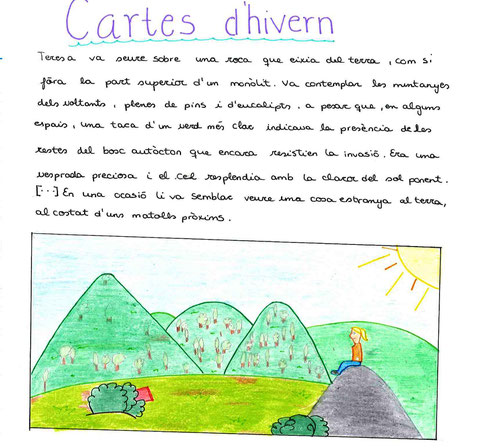 Cartes d'hivern
Teresa va seure sobre una roca que eixia del terra, com si
fóra la part superior d'un monòlit. Va contemplar les muntanyes
dels voltants, plenes de pins i d'eucalipts, a pesar que, en alguns
espais, una taca d'un verd més clar indicava la presència de les
restes del bosc autòcton que encara resistien la invasió. Era una
vesprada preciosa i el cel resplendia amb la claror del sol ponent.
[...] En una ocasió li va semblar veure una cosa estranya al terra,
al costat d'uns matolls pròxims.